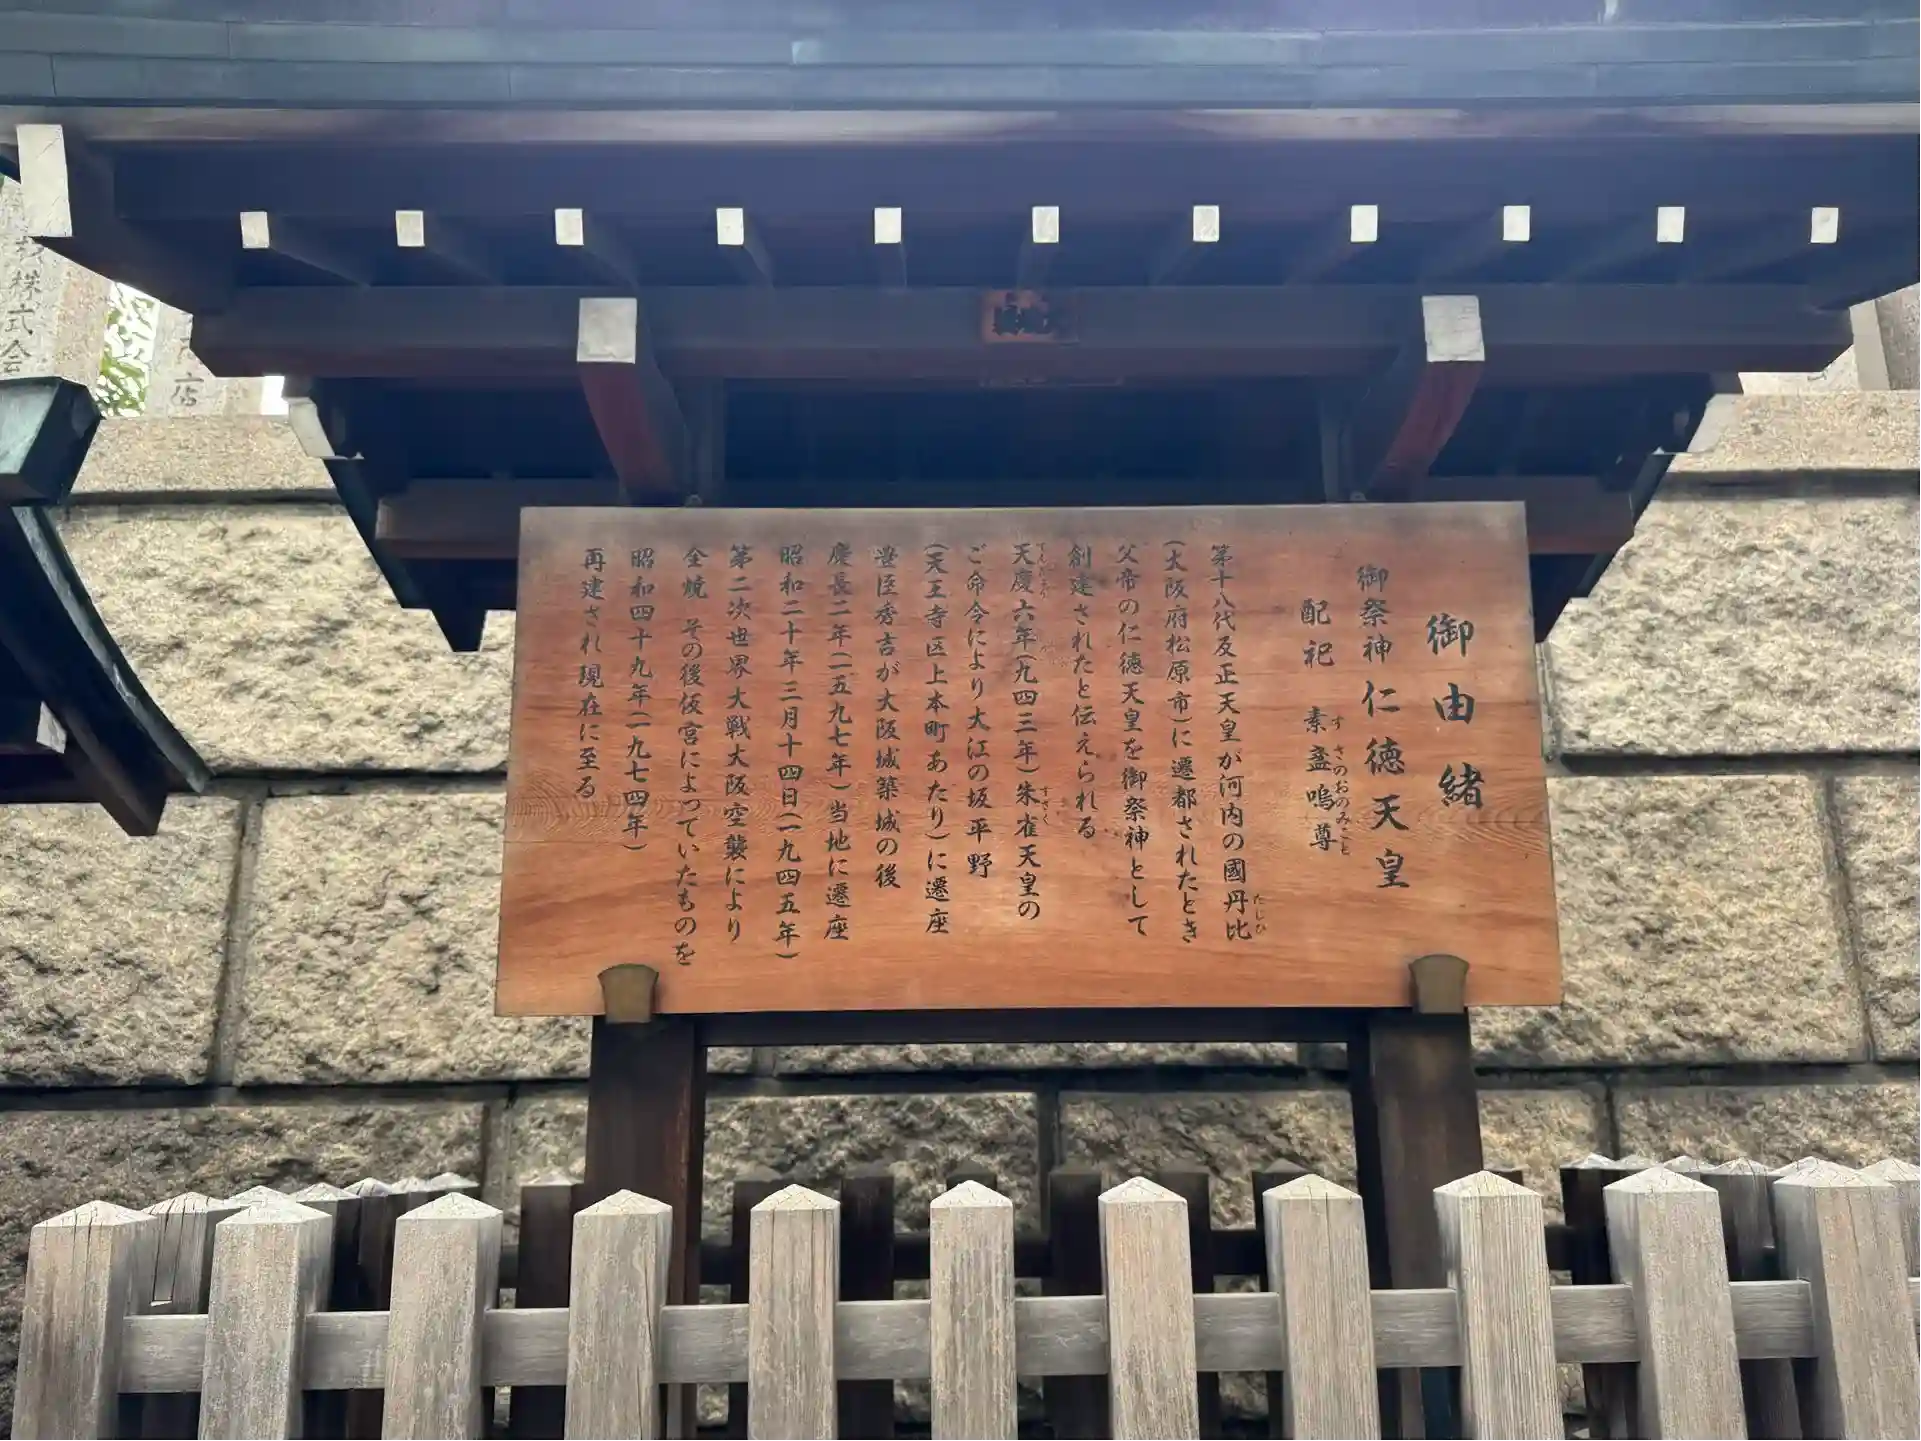 御由緒
御祭神 仁徳天皇
配祀 素盞嗚尊
すさのおのみこと
第十八代反正天皇が河内の國丹比
たじひ
(大阪府松原市)に遷都されたとき
父帝の仁徳天皇を御祭神として
創建されたと伝えられる
天慶六年(九四三年)朱雀天皇の
てんぎょう
すざく
ご命令により大江の坂平野
(天王寺区上本町あたり)に遷座
豊臣秀吉が大阪城築城の後
慶長二年(一五九七年)当地に遷座
昭和二十年三月十四日(一九四五年)
第二次世界大戦大阪空襲により
全焼 その後仮宮によつていたものを
昭和四十九年(一九七四年)
再建され現在に至る
株式会
店